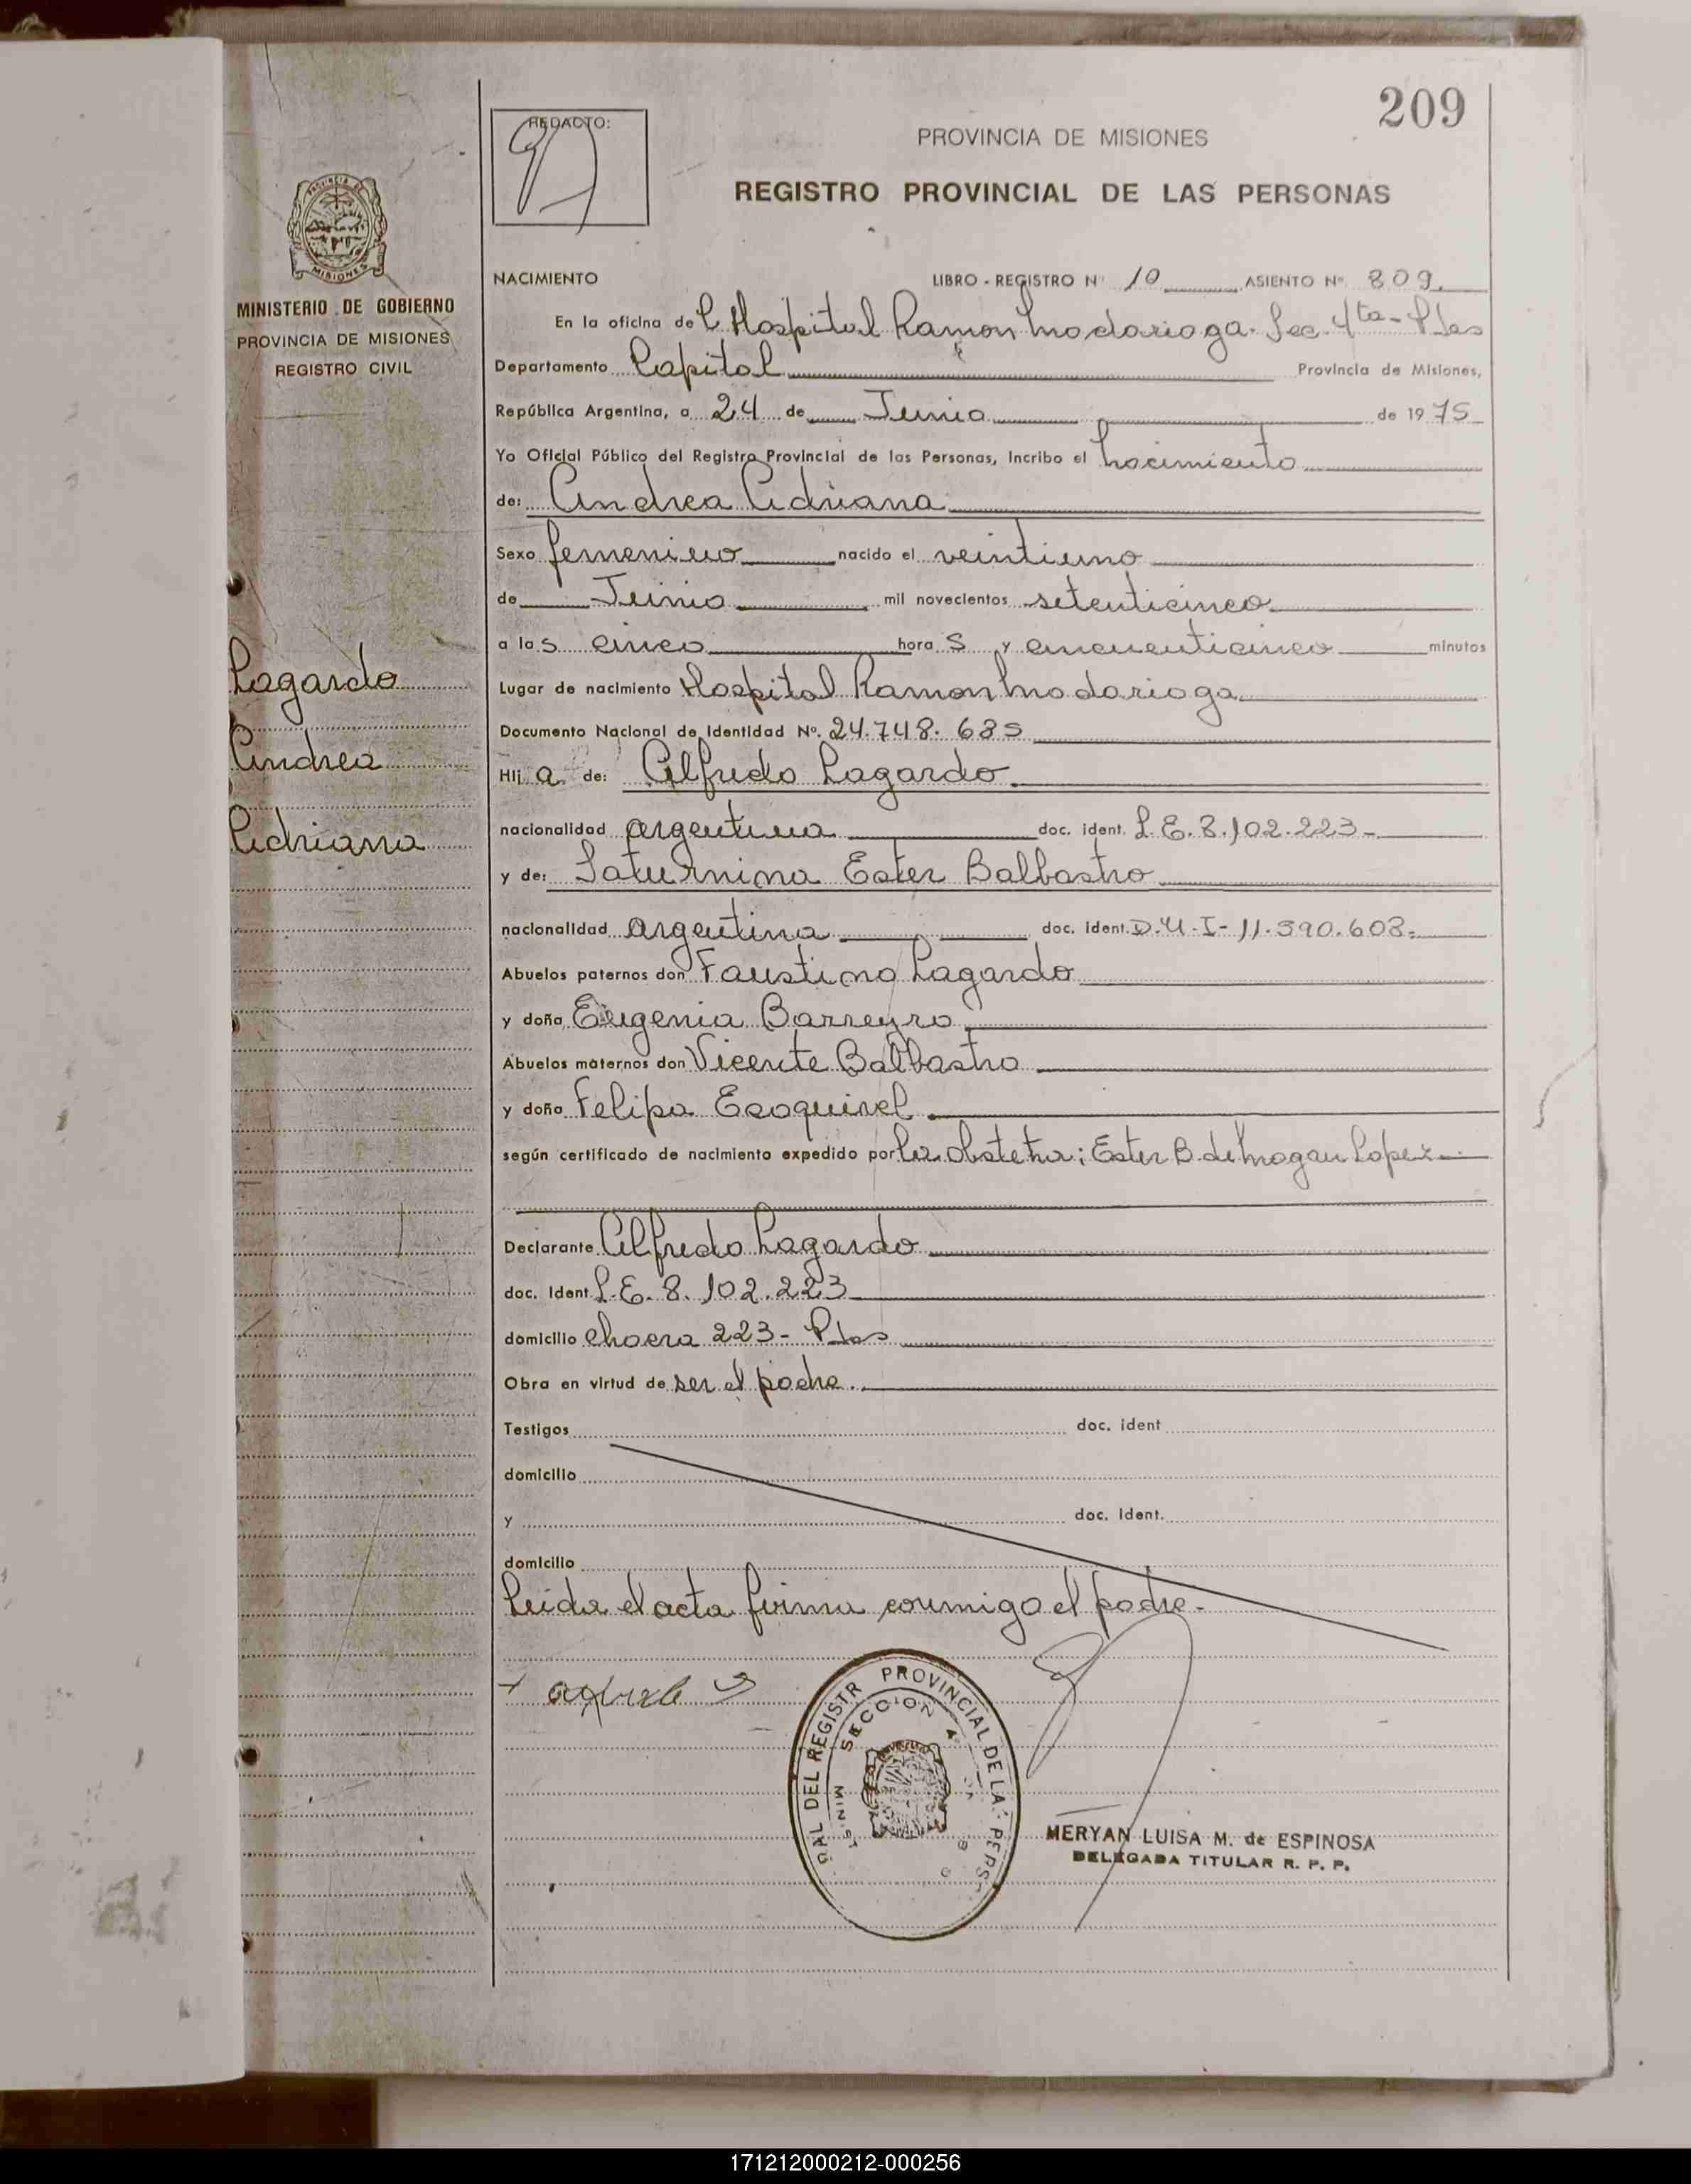 209
REDACTO:
PROVINCIA DE MISIONES
REGISTRO PROVINCIAL DE LAS PERSONAS
MISIONES
MINISTERIO DE GOBIERNO
PROVINCIA DE MISIONES
REGISTRO CIVIL
Lagardo
Andrea
Adriana
NACIMIENTO LIBRO - REGISTRO Nº 10 ASIENTO Nº 809
En la oficina del Hospital Ramon Madariaga. Sec. 4ta - Pdas
Departamento Capital Provincia de Misiones,
República Argentina, a 24 de Junio de 1975
Yo Oficial Público del Registro Provincial de las Personas, Incribo el nacimiento
de: Andrea Adriana
Sexo femenino nacido el veintiuno
de Junio mil novecientos setenticinco
a las cinco horas y cincuenticinco minutos
Lugar de nacimiento Hospital Ramon Madariaga
Documento Nacional de Identidad Nº. 24.748.685
Hija de: Alfredo Lagardo
nacionalidad argentina doc. ident. L.E. 8.102.223-
y de: Saturnina Ester Balbastro
nacionalidad argentina doc. ident. D.N.I- 11.590.603-
Abuelos paternos don Faustino Lagardo
y doña Eugenia Barreyro
Abuelos maternos don Vicente Balbastro
y doña Felipa Esquivel
según certificado de nacimiento expedido por La Obstetra: Ester B. de Lopez
Declarante Alfredo Lagardo
doc. ident. L.E. 8.102.223
domicilio chacra 223- Pdas
Obra en virtud de ser el padre.
Testigos doc. ident
domicilio
y doc. ident.
domicilio
Leida el acta firma conmigo el padre.-
PROVINCIAL DE LAS PERS
DEL REGISTR
SECCION 4
MERYAN LUISA M. de ESPINOSA
DELEGADA TITULAR R. P. P.
171212000212-000256